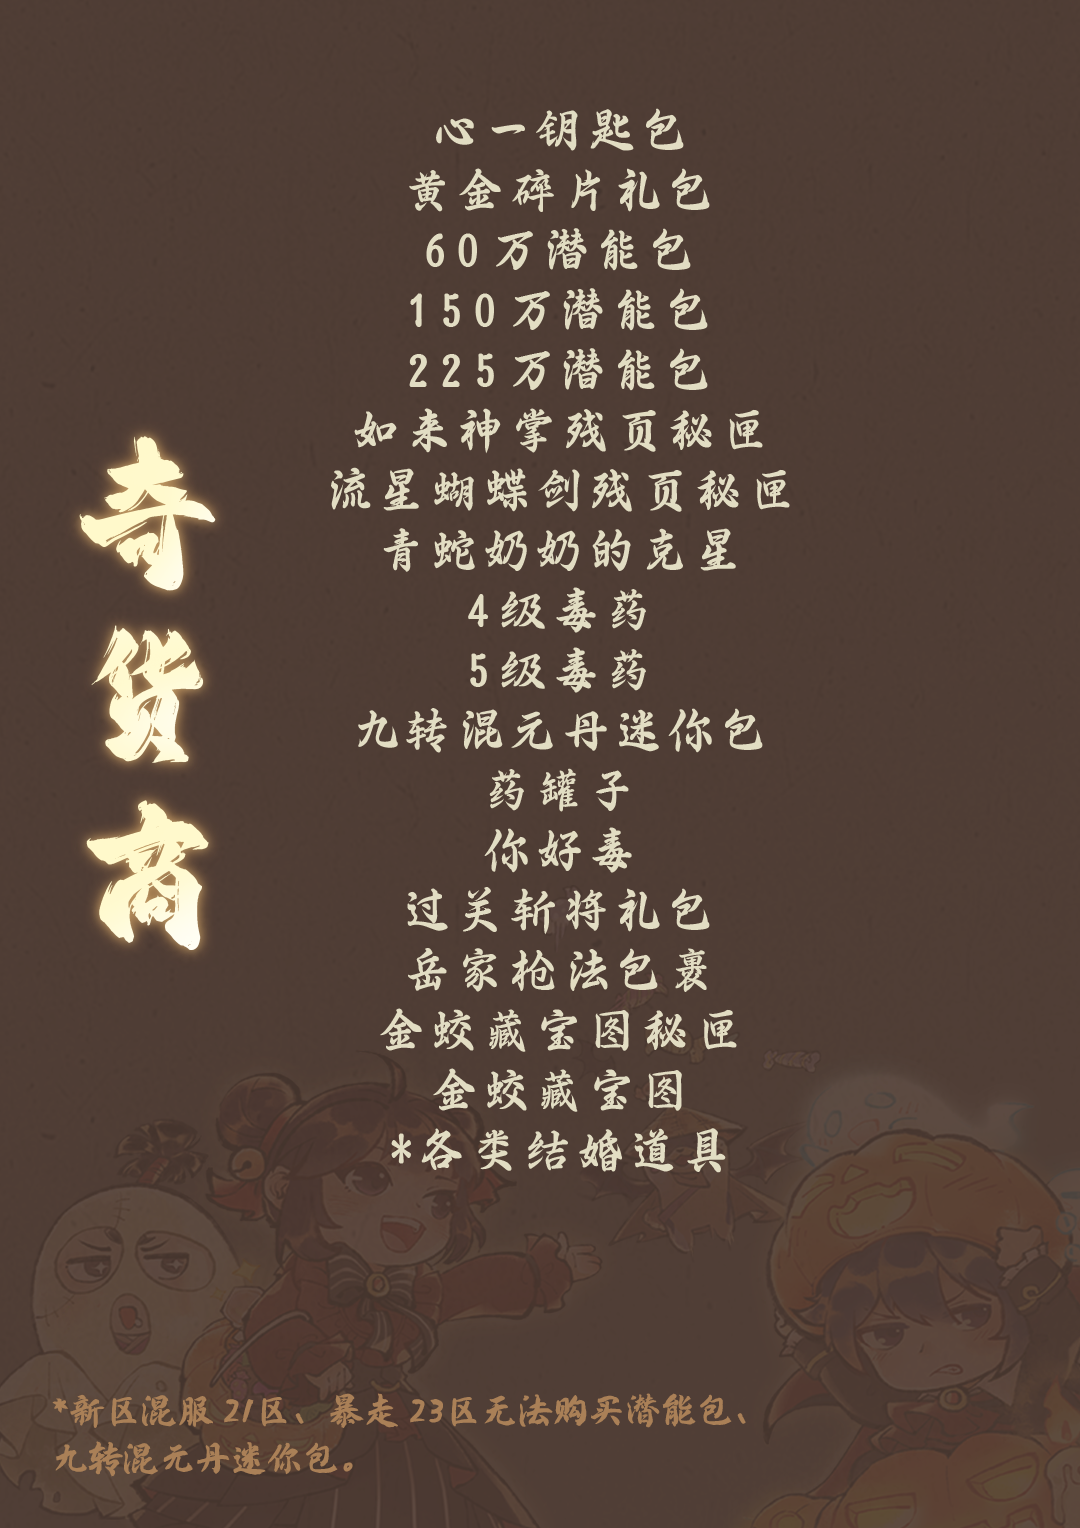 奇货商
心一钥匙包
黄金碎片礼包
60万潜能包
150万潜能包
225万潜能包
如来神掌残页秘匣
流星蝴蝶剑残页秘匣
青蛇奶奶的克星
4级毒药
5级毒药
九转混元丹迷你包
药罐子
你好毒
过关斩将礼包
岳家枪法包裹
金蛟藏宝图秘匣
金蛟藏宝图
*各类结婚道具
*新区混服21区、暴走23区无法购买潜能包、
九转混元丹迷你包。